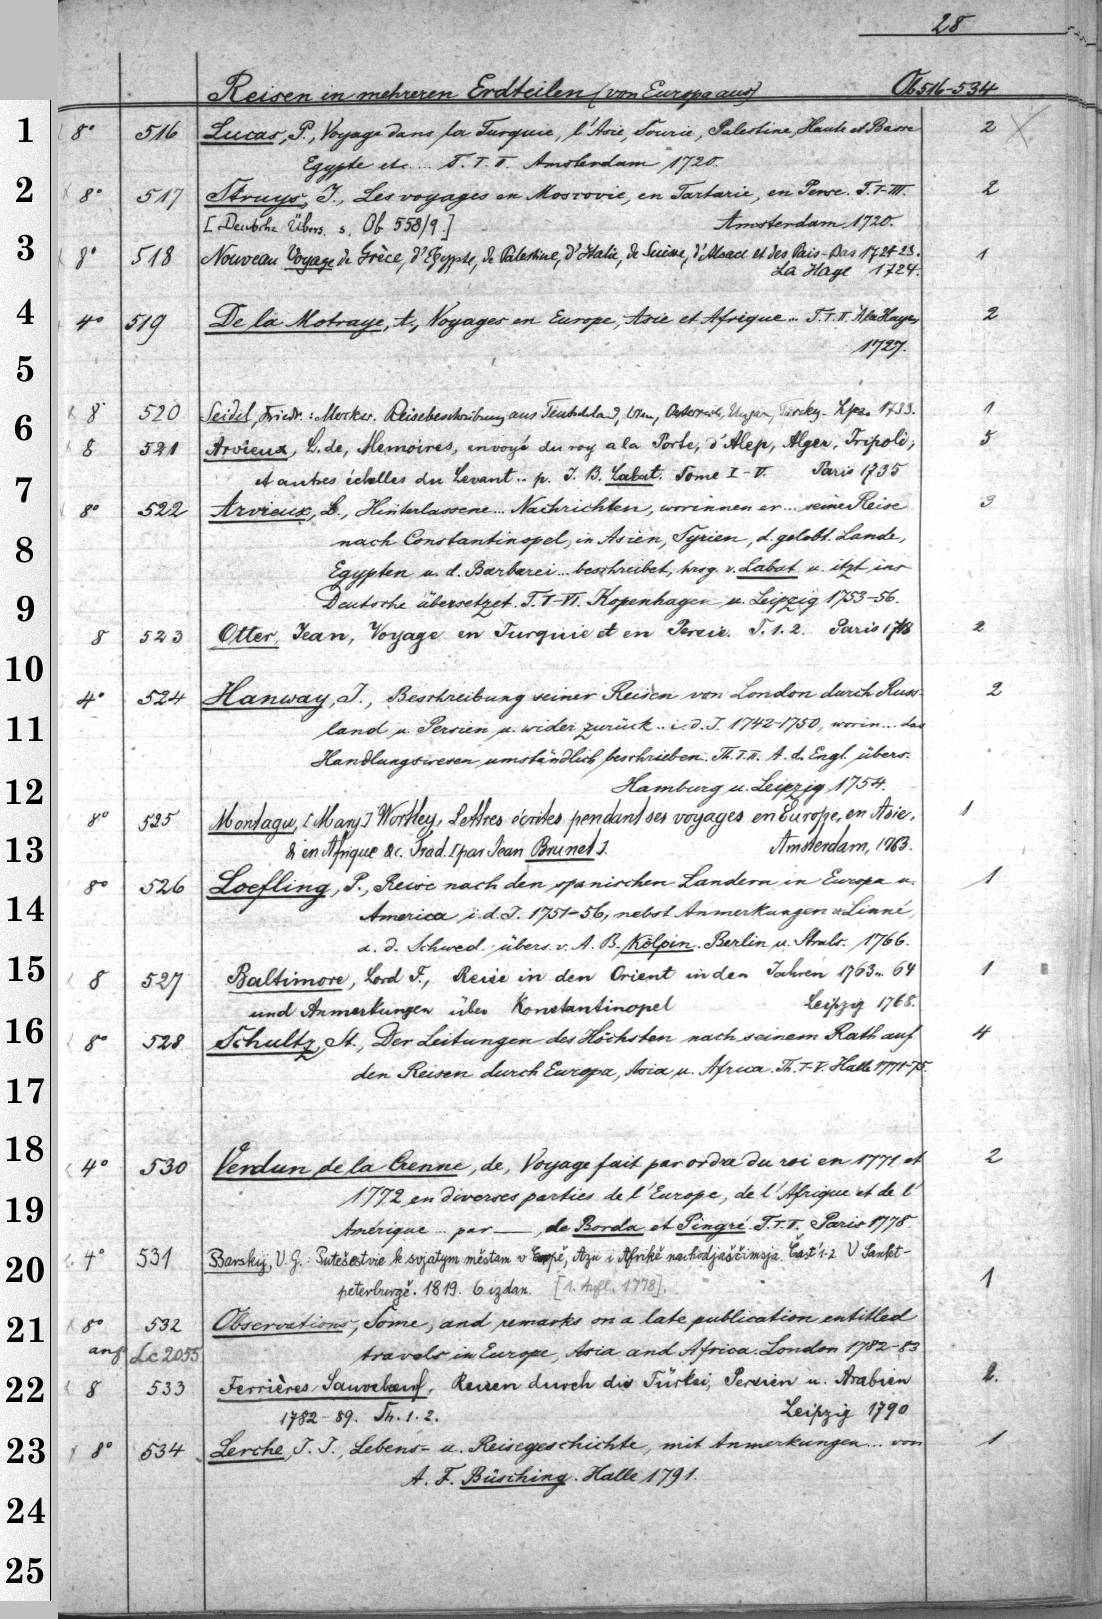 28
Reisen in mehreren Erdteilen (von Europa aus) Ob 516-534
1 8° 516 Lucas, P., Voyage dans la Turquie, l'Asie, Sourie, Palestine, Haute et Basse 2
Egypte etc... T. I. II. Amsterdam 1720.
2 8° 517 Struys, J., Les voyages en Moscovie, en Tartarie, en Perse. T. I-III. 2
[Deutsche Übers. s. Ob 558/9.] Amsterdam 1720.
3 8° 518 Nouveau Voyage de Grèce, d'Egypte, de Palestine, d'Italie, de Suisse, d'Alsace et des Pais-Bas 1721-23. 1
La Haye 1724.
4 4° 519 De la Motraye, A., Voyages en Europe, Asie et Afrique... T. I. II. A la Haye, 2
1727.
5
8 520 Seidel, Friedr.: Merkw. Reisebeschreibung aus Teutschland, Oesterreich, Ungarn, Türcky. Lpz. 1733. 1
6
8 521 Arvieux, L. de, Memoires, envoyé du roy a la Porte, d'Alep, Alger, Tripoli, 5
et autres échelles du Levant.. p. J. B. Labat. Tome I-V. Paris 1735
7
8° 522 Arvieux, L., Hinterlassene... Nachrichten, worinnen er... seine Reise 3
nach Constantinopel, in Asien, Syrien, d. gelobt. Lande,
8
Egypten u. d. Barbarei... beschreibet, hrsg. v. Labat u. itzt ins
9 Deutsche übersetzet. T. I-VI. Kopenhagen u. Leipzig 1753-56.
8 523 Otter, Jean, Voyage en Turquie et en Perse. T. 1. 2. Paris 1748 2
10
4° 524 Hanway, J., Beschreibung seiner Reisen von London durch Russ- 2
11 land u. Persien u. wider zurück... i. d. J. 1742-1750, worin... das
Handlungswesen umständlich beschrieben. Th. I. II. A. d. Engl. übers.
12 Hamburg u. Leipzig 1754.
8° 525 Montagu, [Mary] Wortley, Lettres écrites pendant ses voyages en Europe, en Asie, 1
13 & en Afrique &c. Trad. [par Jean Brunet]. Amsterdam, 1763.
8° 526 Loefling, P., Reise nach den spanischen Ländern in Europa u. 1
14 America i. d. J. 1751-56, nebst Anmerkungen v. Linné,
a. d. Schwed. übers. v. A. B. Kölpin. Berlin u. Strals. 1766.
15 8 527 Baltimore, Lord F., Reise in den Orient in den Jahren 1763 u. 64 1
und Anmerkungen über Konstantinopel Leipzig 1768.
16 8° 528 Schultz, St., Der Leitungen des Höchsten nach seinem Rath auf 4
den Reisen durch Europa, Asia u. Africa. Th. I-V. Halle 1771-75.
17
18 4° 530 Verdun de la Crenne, de, Voyage fait par ordre du roi en 1771 et 2
1772 en diverses parties de l'Europe, de l'Afrique et de l'
19 Amérique... par —, de Borda et Pingré. T. I. II. Paris 1778.
20 4° 531 Barskij, V. G. Putešestvie k svjatym městam v Evropě, Azii i Afrikě nachodjaščimsja. Čast' 1-2 V Sankt-
peterburgě. 1819. 6 izdan. [1. Aufl. 1778]. 1
21 8° 532 Observations, Some, and remarks on a late publication entitled
auf Lc 2055 travels in Europe, Asia and Africa. London 1782-83
22 8 533 Ferrières-Sauveboeuf, Reisen durch die Türkei, Persien u. Arabien 2.
1782-89. Th. 1. 2. Leipzig 1790
23 8° 534 Lerche, J. J., Lebens- u. Reisegeschichte, mit Anmerkungen... von 1
A. F. Büsching. Halle 1791.
24
25